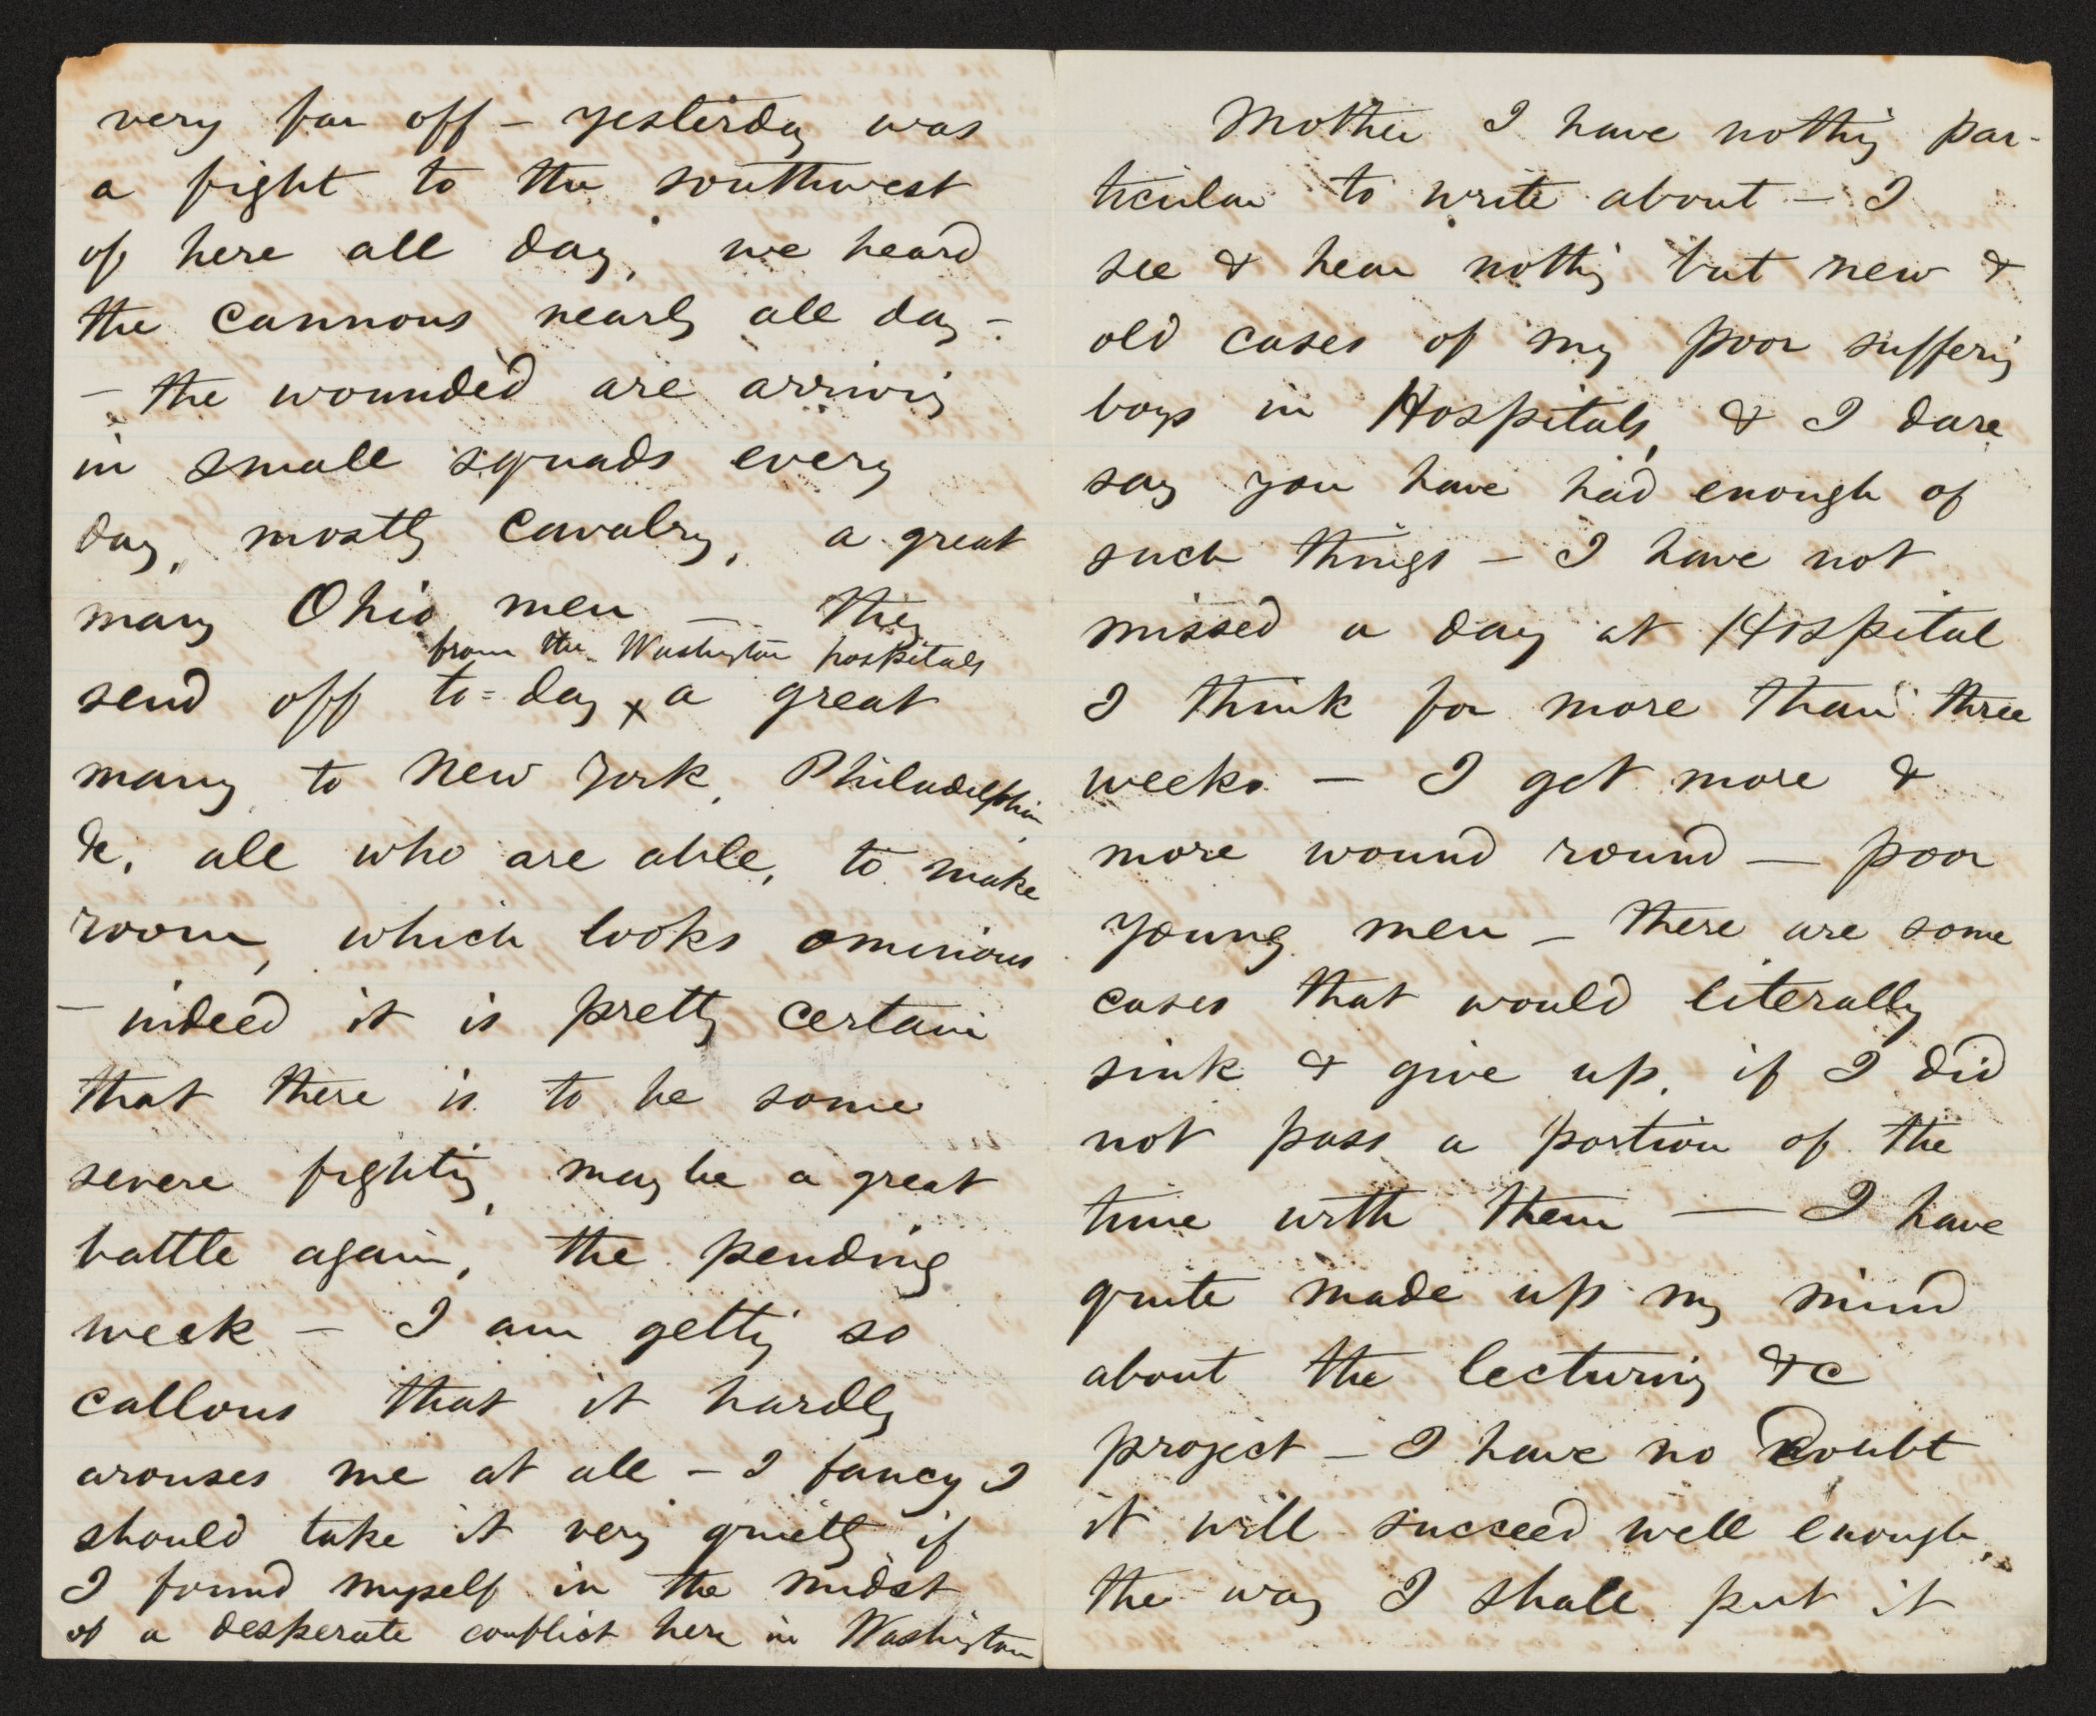 very far off – yesterday was
a fight to the southwest
of here all day, we heard
the cannons nearly all day –
– the wounded are arriving
in small squads every
day, mostly cavalry, a great
many Ohio men – they
from the Washington hospitals
send off to=day x a great
many to New York, Philadelphia,
&c, all who are able, to make
room, which looks ominious
– indeed it is pretty certain
that there is to be some
severe fighting, maybe a great
battle again, the pending
week – I am getting so
callous that it hardly
arouses me at all – I fancy I
should take it very quietly if
I found myself in the midst
of a desperate conflict here in Washington
Mother I have nothing par-
ticular to write about – I
see & hear nothing but new &
old cases of my poor suffering
boys in Hospitals, & I dare
say you have had enough of
such things – I have not
missed a day at Hospital
I think for more than three
weeks – I get more &
more wound round – poor
young men – there are some
cases that would literally
sink & give up, if I did
not pass a portion of the
time with them – I have
quite made up my mind
about the lecturing &c
project – I have no doubt
it will succeed well enough,
the way I shall put it